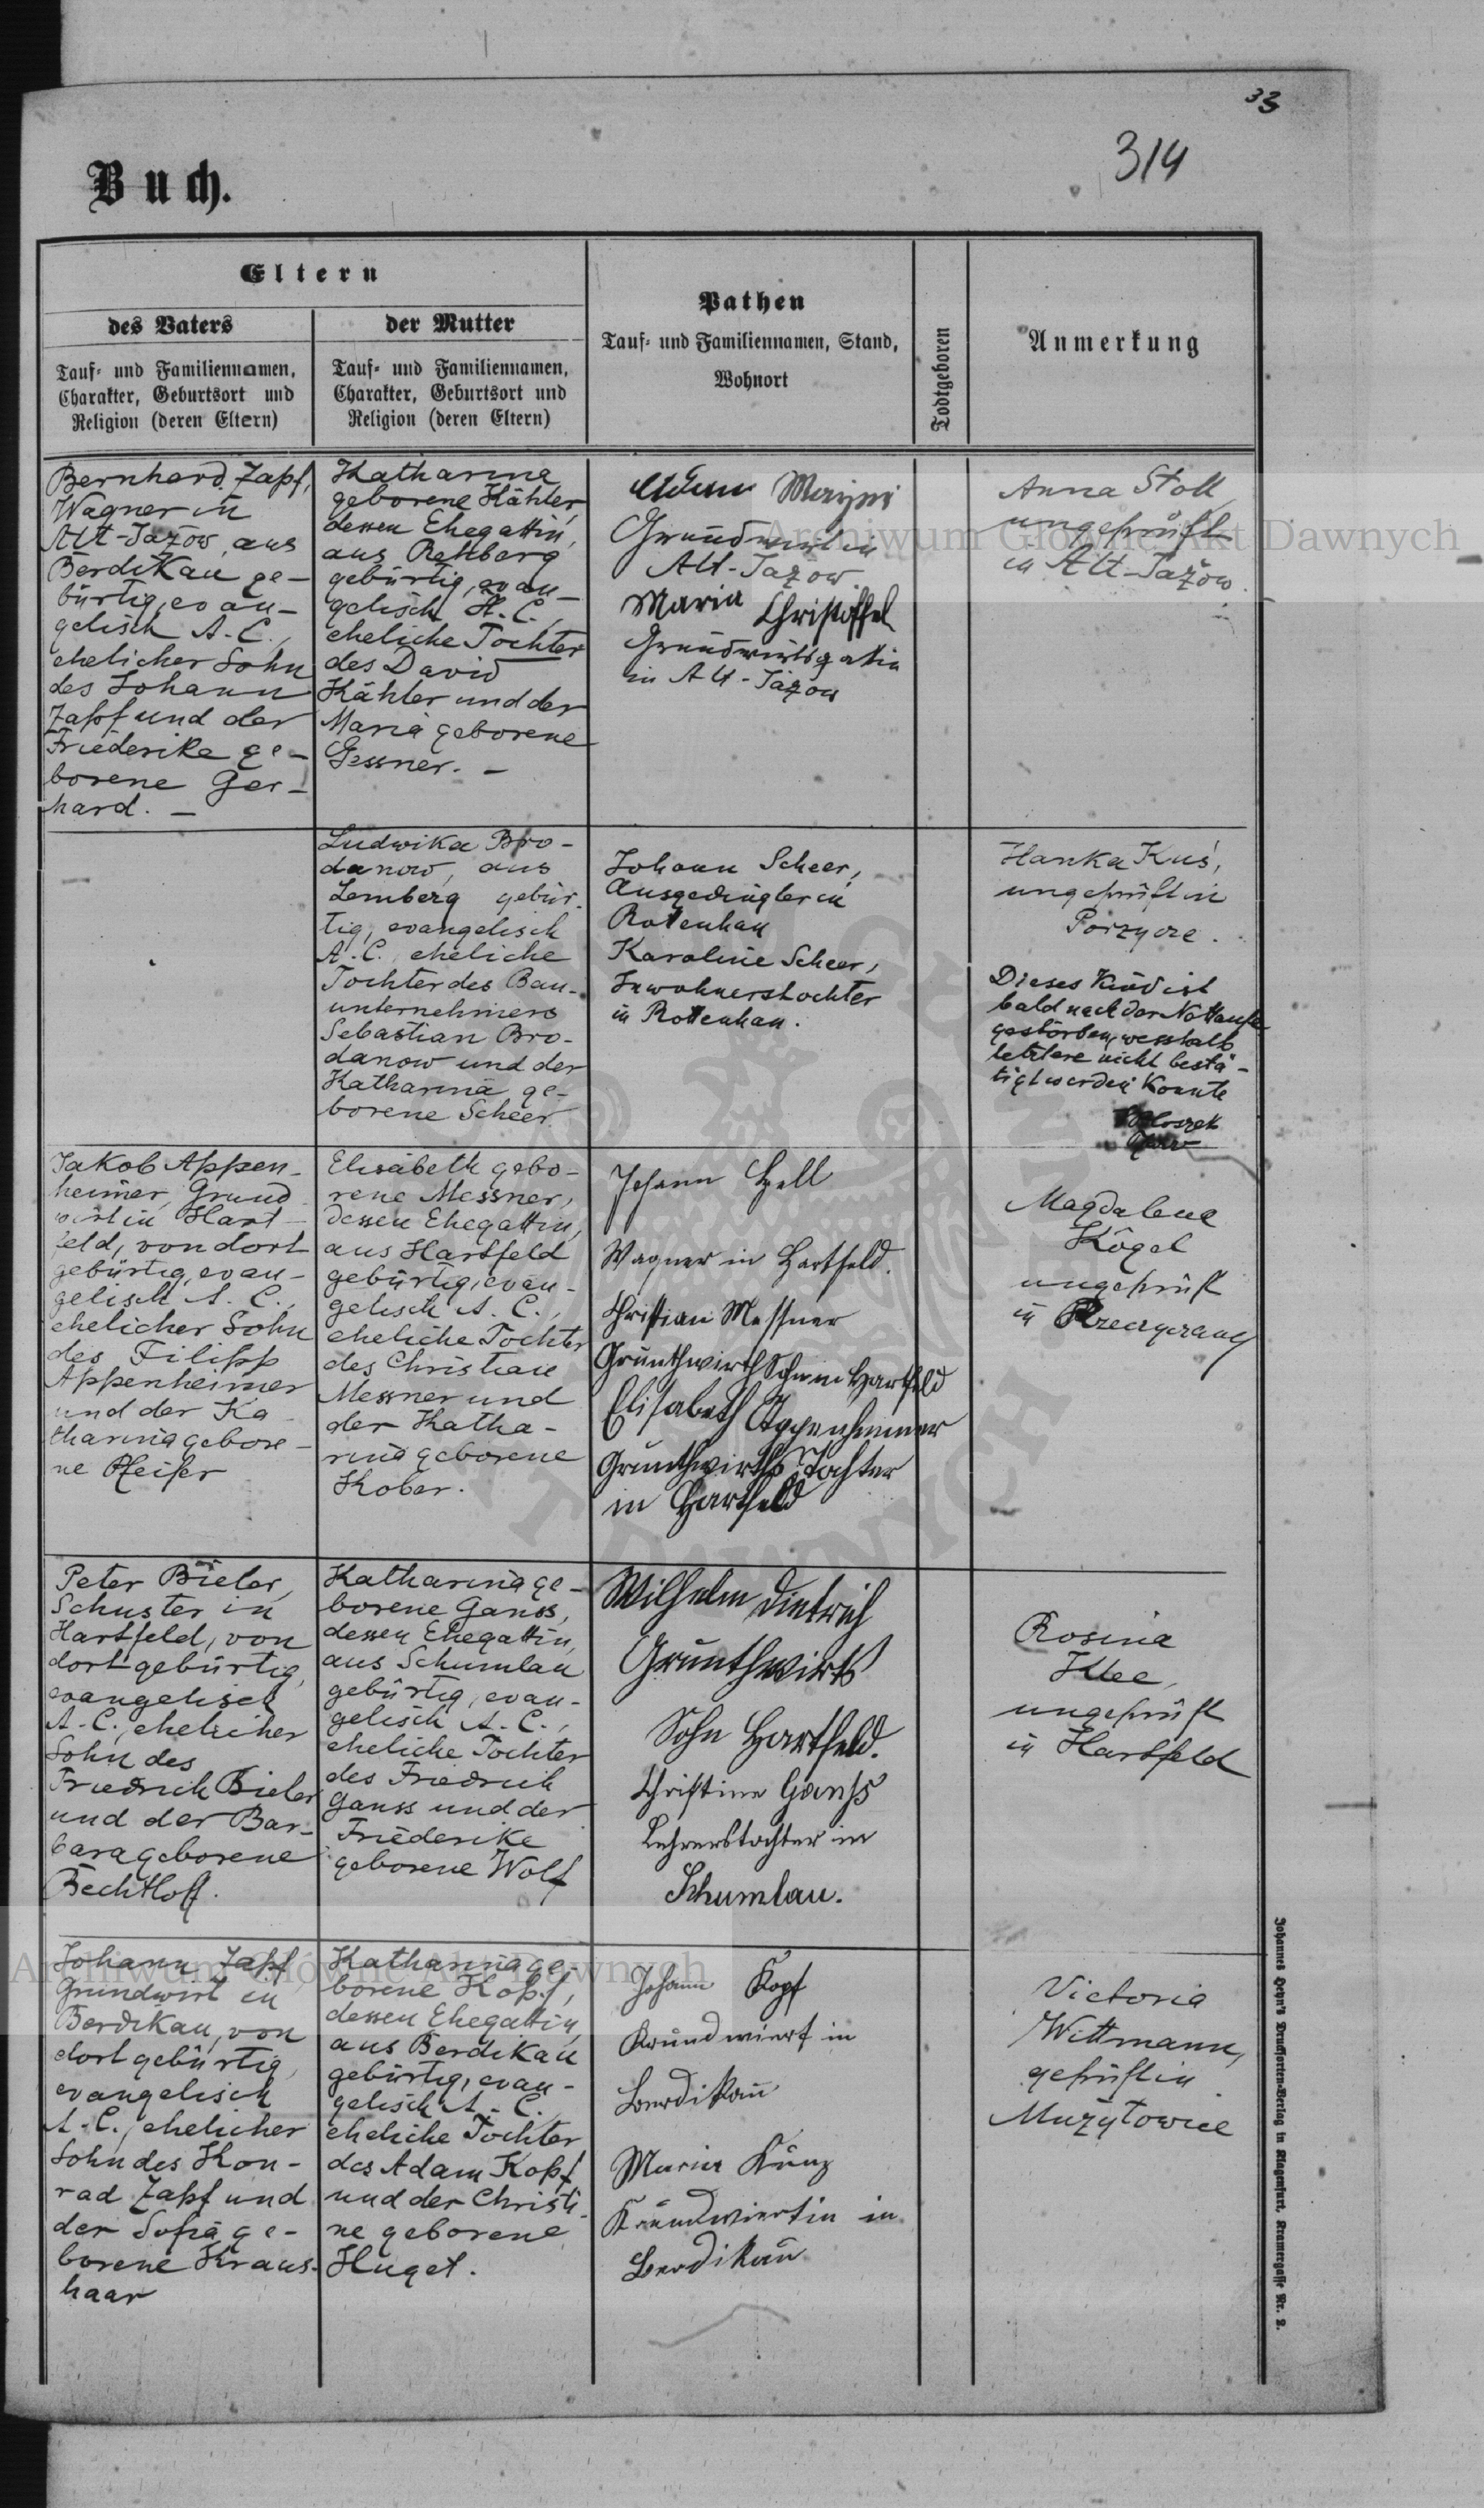 33
314
Buch.
Eltern
des Vaters
Tauf- und Familiennamen,
Charakter, Geburtsort und
Religion (deren Eltern)
der Mutter
Tauf- und Familiennamen,
Charakter, Geburtsort und
Religion (deren Eltern)
Pathen
Tauf- und Familiennamen, Stand,
Wohnort
Todtgeboren
Anmerkung
Bernhard Zapf,
Wagner in
Alt-Jażow, aus
Berdikau ge-
bürtig, evan-
gelisch A. C.,
ehelicher Sohn
des Johann
Zapf und der
Friederike ge-
borene Ger-
hard. —
Katharina
geborene Kähler,
dessen Ehegattin,
aus Rehberg
gebürtig, evan-
gelisch A. C.,
eheliche Tochter
des David
Kähler und der
Maria geborene
Gessner. —
Grundwirt in
Alt-Jażow
Maria Christoffel
Grundwirtsgattin
in Alt-Jażow
Anna Stoll
ungeprüft
in Alt-Jażow.
Ludwika Bro-
danow, aus
Lemberg gebür-
tig, evangelisch
A. C., eheliche
Tochter des Bau-
unternehmers
Sebastian Bro-
danow und der
Katharina ge-
borene Scheer.
Johann Scheer,
Ausgedingler in
Rottenhan
Karoline Scheer,
Inwohnerstochter
in Rottenhan.
Hanka Kuś,
ungeprüft in
Porzycze.
Dieses Kind ist
bald nach der Nottaufe
gestorben, wesshalb
letztere nicht bestä-
tigt werden konnte
Jakob Appen-
heimer, Grund-
wirt in Hart-
feld, von dort
gebürtig, evan-
gelisch A. C.,
ehelicher Sohn
des Filipp
Appenheimer
und der Ka-
tharina gebore-
ne Pfeifer
Elisabeth gebo-
rene Messner,
dessen Ehegattin,
aus Hartfeld
gebürtig, evan-
gelisch A. C.,
eheliche Tochter
des Christian
Messner und
der Katha-
rina geborene
Kober.
Johann Hell
Wagner in Hartfeld.
Christian Messner
Grünthwirth Sohn in Hartfeld
Elisabeth Appenheimer
Grünthwirths Tochter
in Hartfeld
Magdalena
Kögel
ungeprüft
in
Peter Bieler,
Schuster in
Hartfeld, von
dort gebürtig,
evangelisch
A. C., ehelicher
Sohn des
Friedrich Bieler
und der Bar-
bara geborene
Bechtloff.
Katharina ge-
borene Ganss,
dessen Ehegattin,
aus Schumlau
gebürtig, evan-
gelisch A. C.,
eheliche Tochter
des Friedrich
Ganss und der
Friederike
geborene Wolf
Wilhelm Dietrich
Grünthwirts
Sohn Hartfeld.
Christine Ganss
Lehrerstochter in
Schumlau.
Rosina
Klee,
ungeprüft
in Hartfeld
Johann Zapf
Grundwirt in
Berdikau, von
dort gebürtig,
evangelisch
A. C., ehelicher
Sohn des Kon-
rad Zapf und
der Sofia ge-
borene Kraus-
haar
Katharina ge-
borene Kopf,
dessen Ehegattin,
aus Berdikau
gebürtig, evan-
gelisch A. C.
eheliche Tochter
des Adam Kopf
und der Christi-
ne geborene
Huget.
Johann Kopf
Grundwiert in
Berdikau
Maria Kunz
Grundwiertin in
Berdikau
Victoria
Wittmann,
geprüft in
Mużyłowice
Johannes Heyn's Drucksorten-Verlag in Klagenfurt, Kramergasse Nr. 2.
Archiwum Główne Akt Dawnych
Archiwum Główne Akt Dawnych